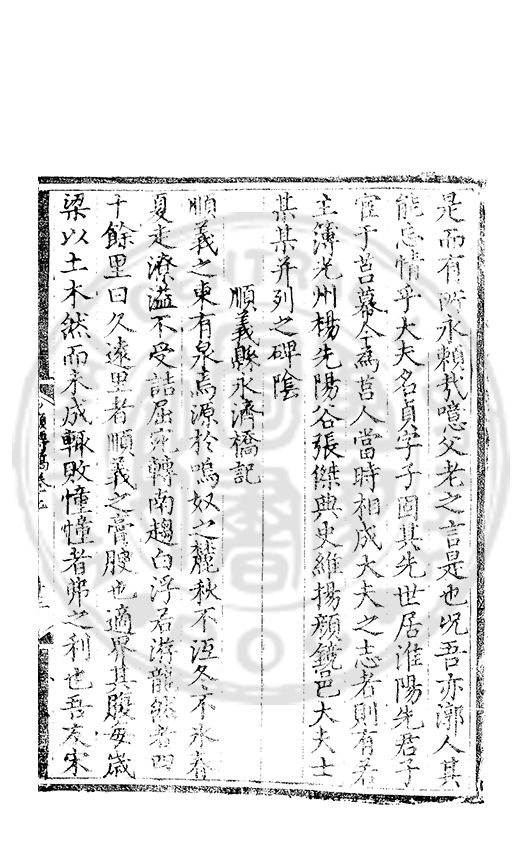 是而有所永賴哉噫父老之言是也況吾亦漷人其
能忘情乎大夫名貢字子固其先世居淮陽先君子
宦于莒幕今為莒人當時相成大夫之志者則有若
主簿光州楊先陽谷張傑典史維揚顏鏡邑大夫士
某某并列之碑陰
順義縣永濟橋記
順義之東有泉焉源於嗚奴之麓秋不涸冬不氷春
夏走潦溢不受詰屈宛轉南趨白浮若游龍然者四
十餘里曰久遠里者順義之膏腴也適界其股每歲
梁以土木然而未成輒敗憧憧者弗之利也吾友宋